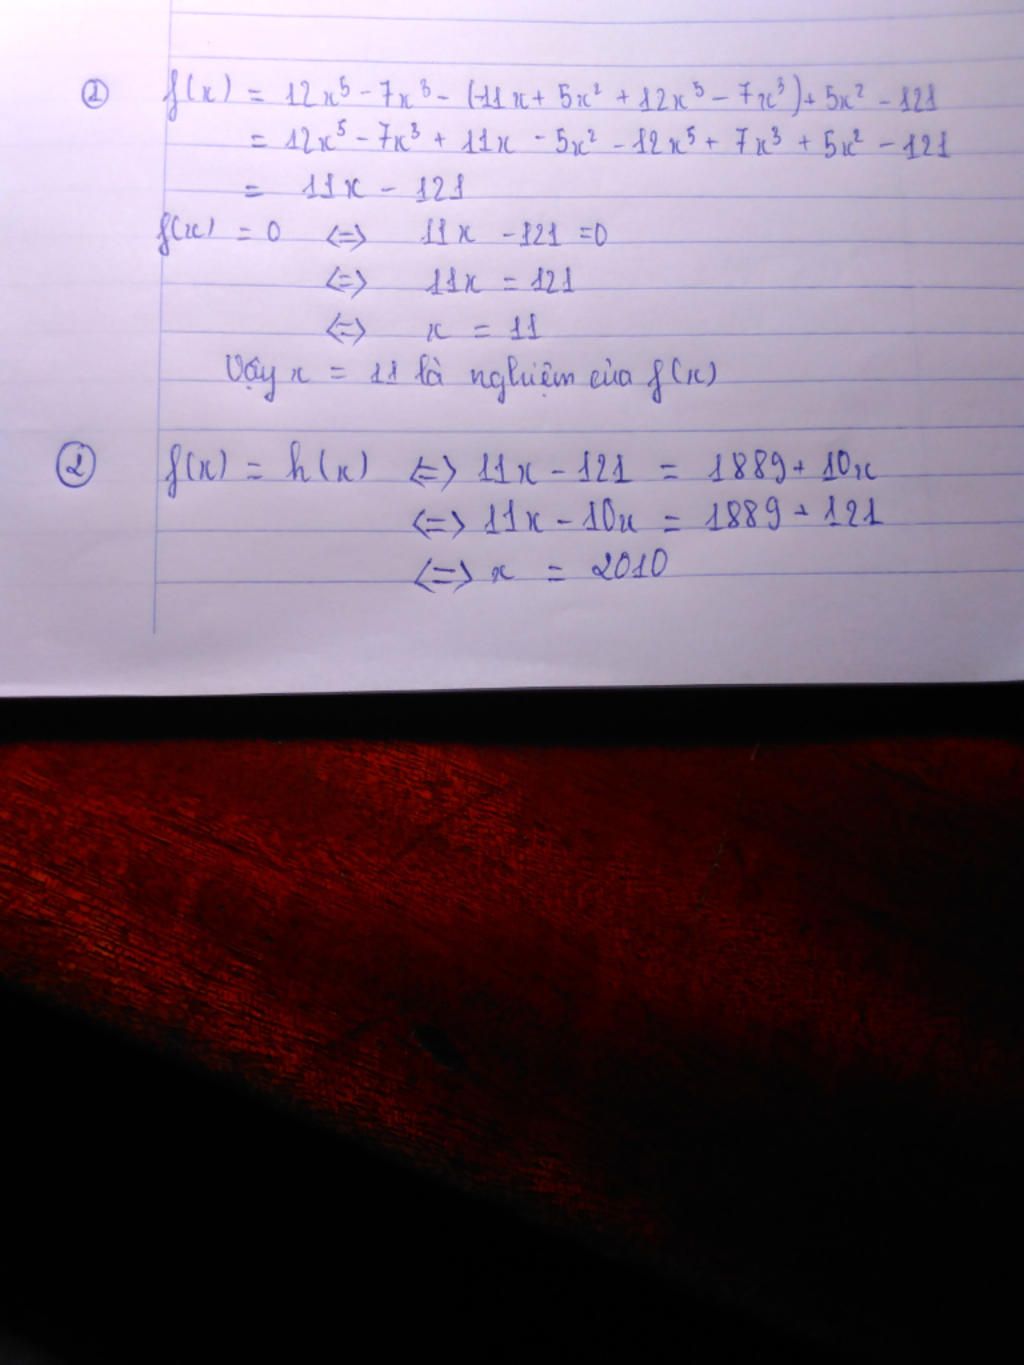 ① f(x) = 12x⁵ - 7x³ - (-11x + 5x² + 12x⁵ - 7x³) + 5x² - 121
= 12x⁵ - 7x³ + 11x - 5x² - 12x⁵ + 7x³ + 5x² - 121
= 11x - 121
f(x) = 0 <=> 11x - 121 = 0
<=> 11x = 121
<=> x = 11
Vậy x = 11 là nghiệm của f(x)
② f(x) = h(x) <=> 11x - 121 = 1889 + 10x
<=> 11x - 10x = 1889 + 121
<=> x = 2010